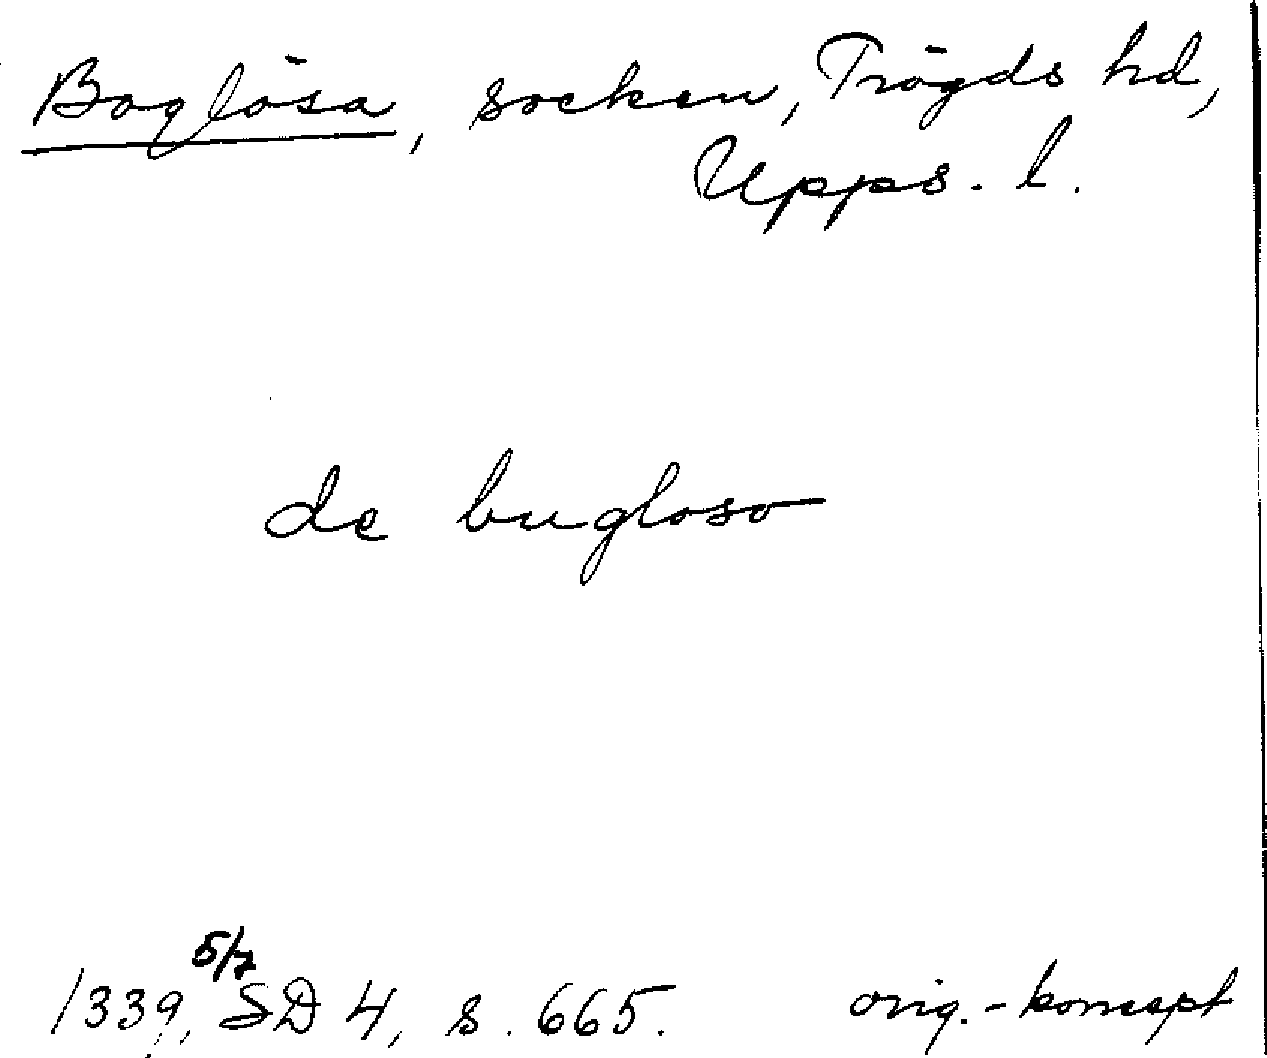 Boglösa, socken, Trögds hd,
Upps. l.
de bugloso
5/7
1339, SD 4, s. 665. orig.-koncept